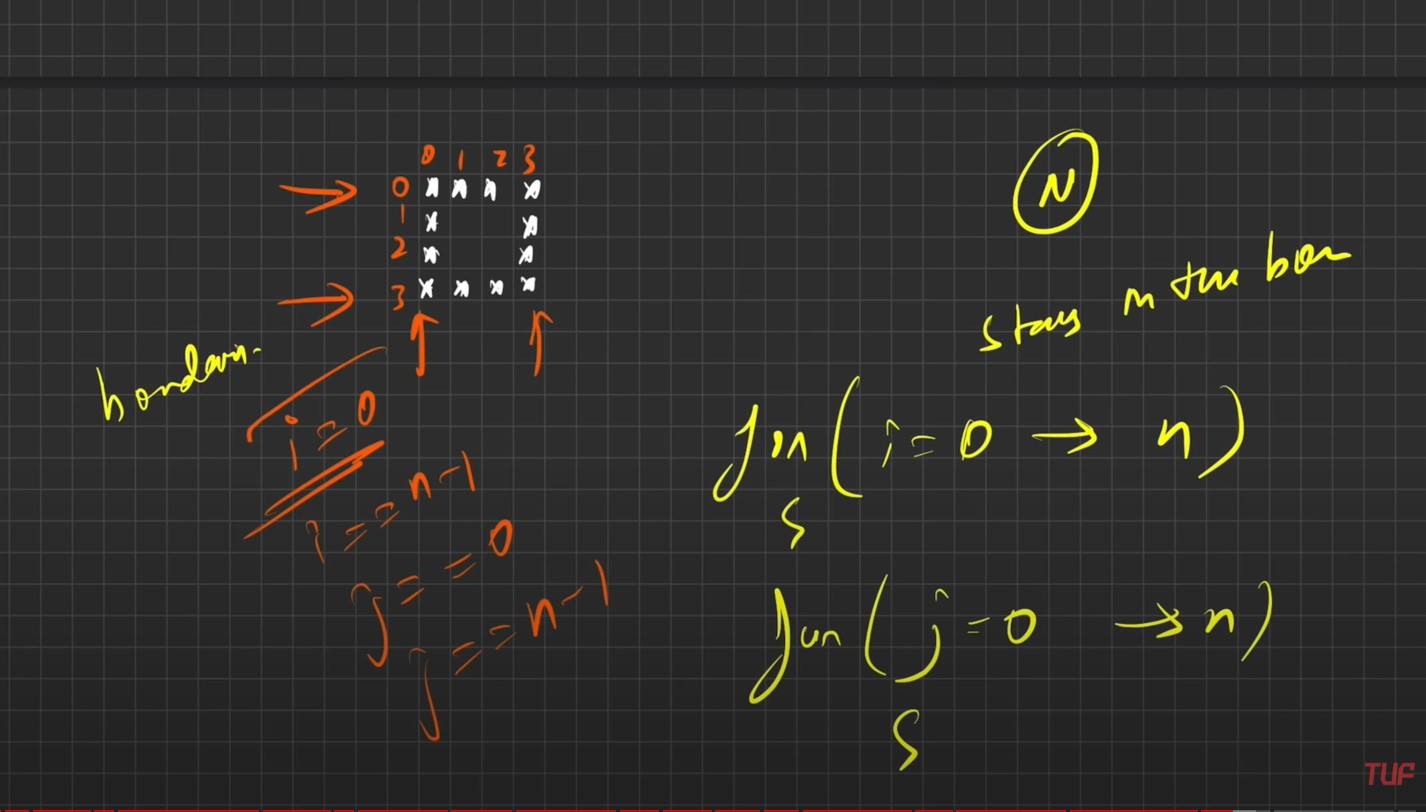 0 1 2 3
0 * * * *
1 * *
2 * *
3 * * * *
boundary.
i = 0
i == n-1
j == 0
j == n-1
N
stars in the bou
for (i = 0 → n)
{
for (j = 0 → n)
{
TUF